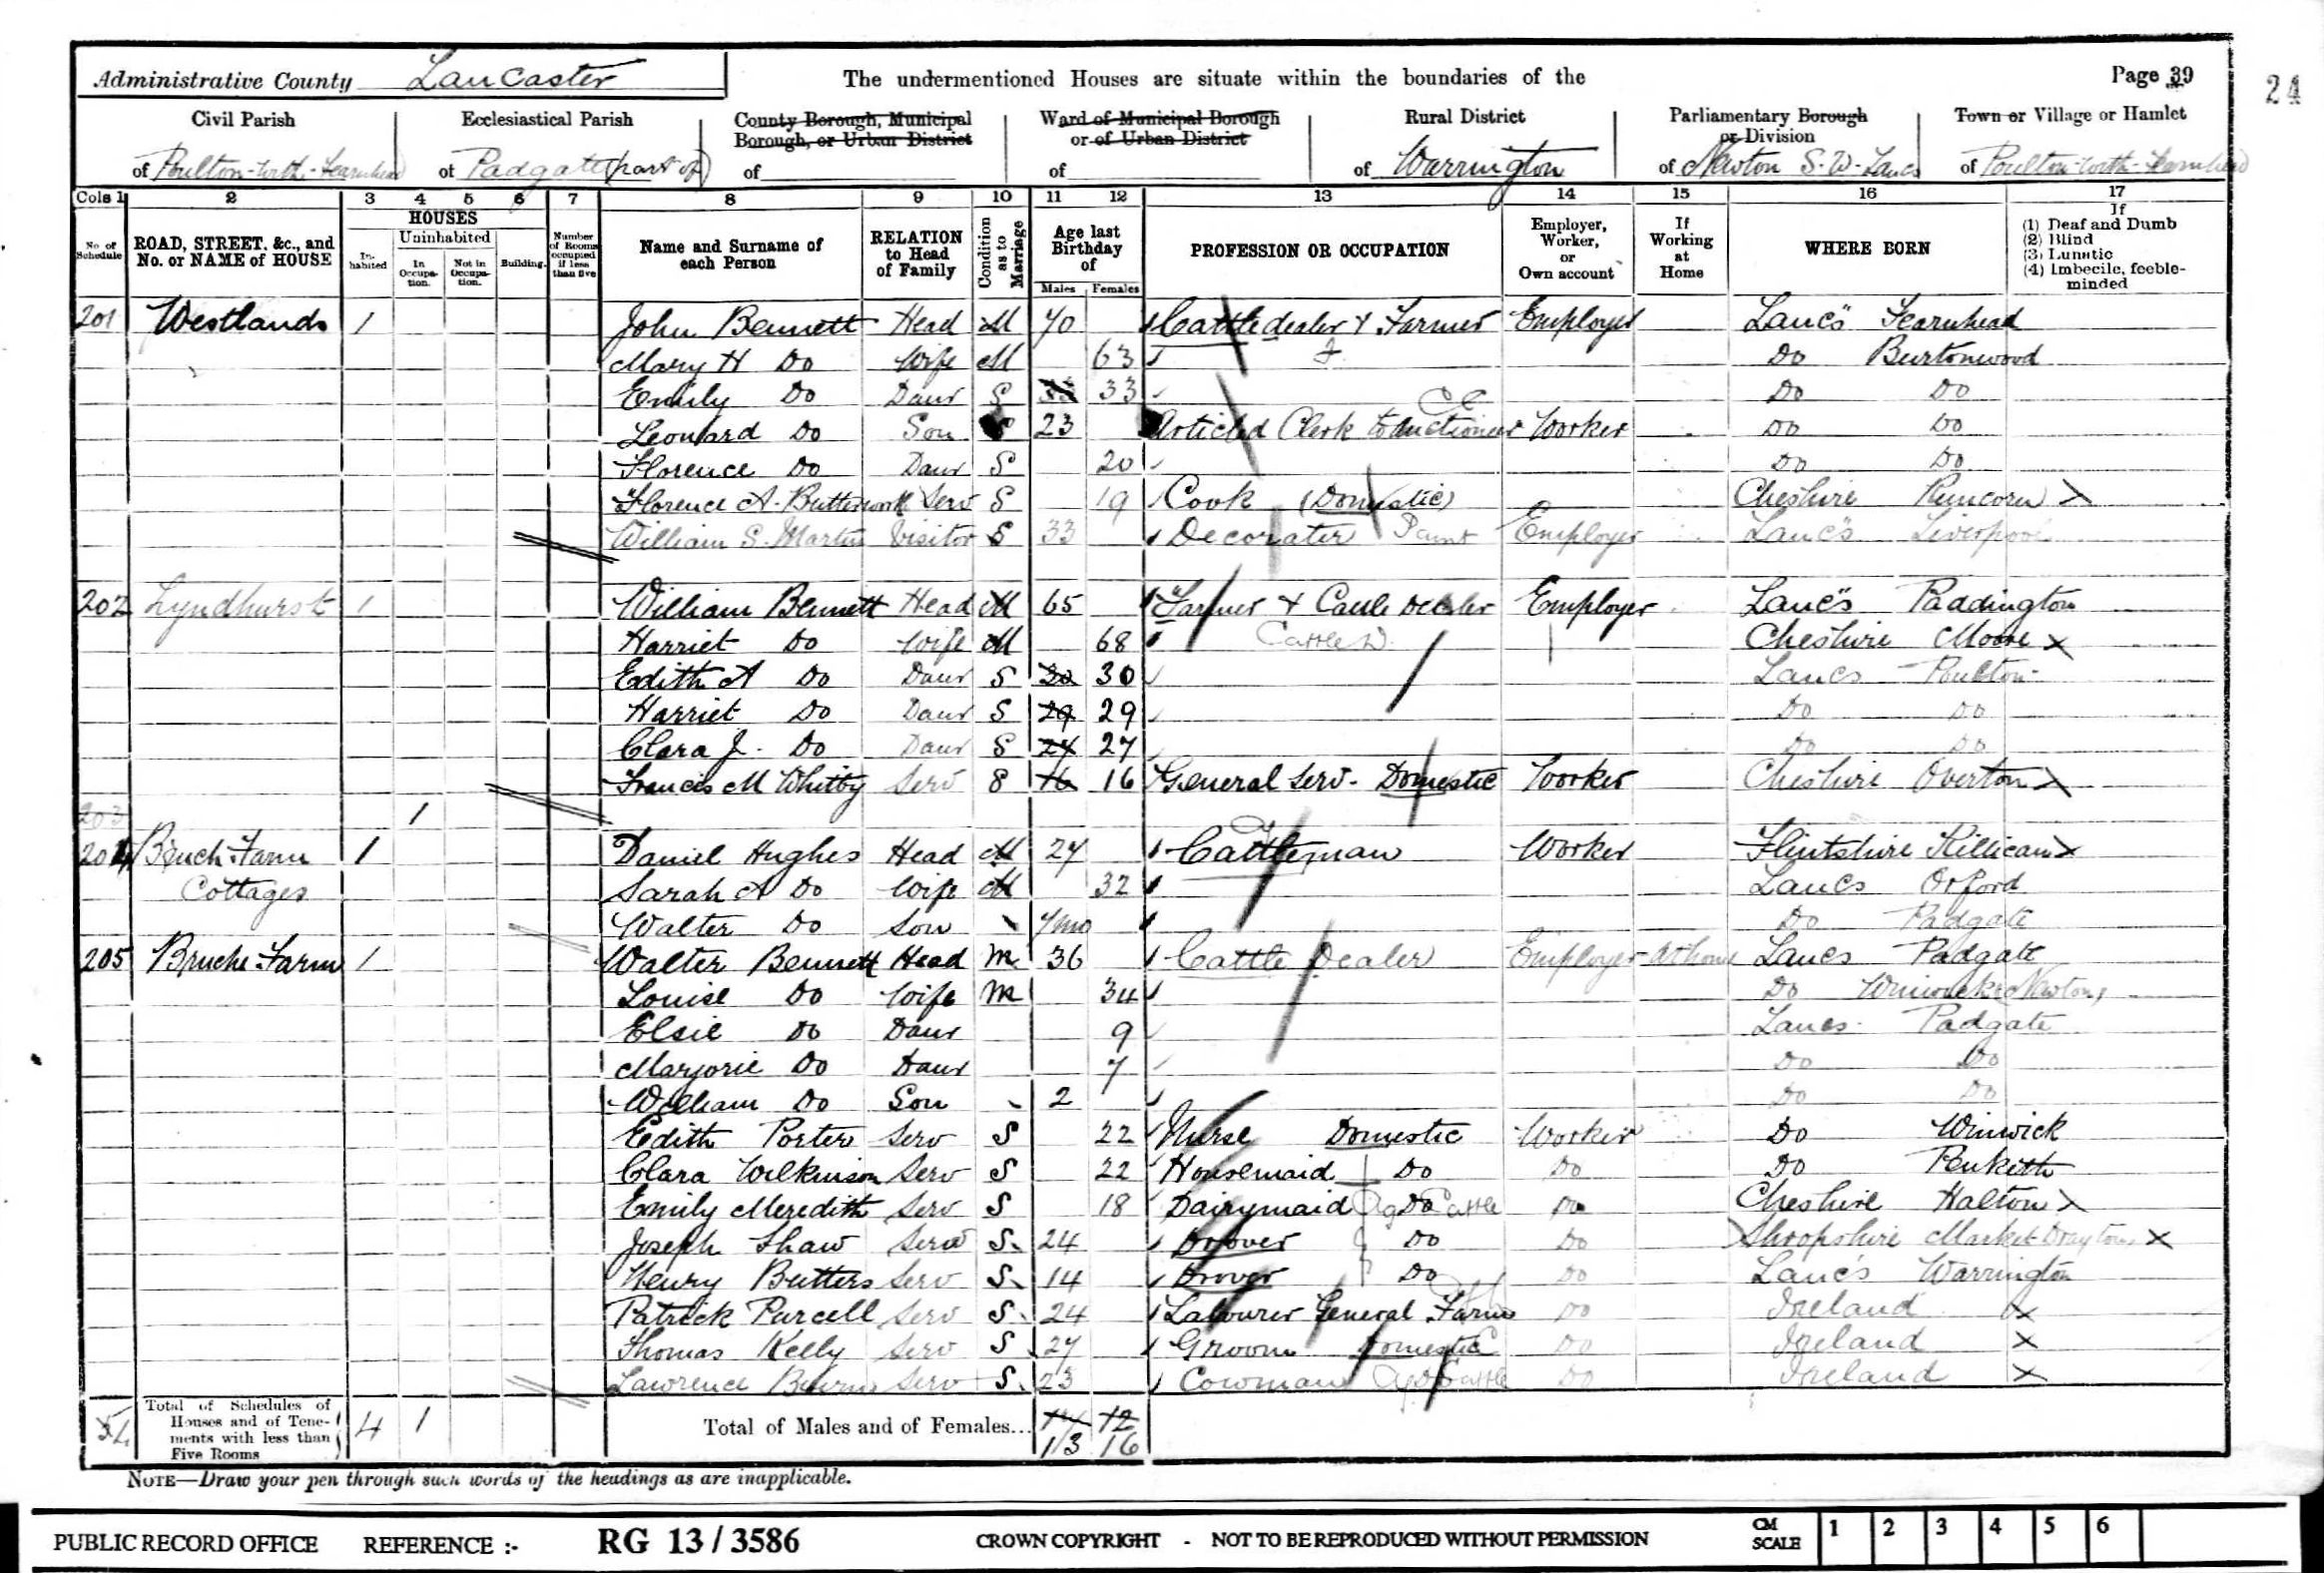 Administrative County Lancaster
The undermentioned Houses are situate within the boundaries of the
Page 39
24
Civil Parish
Ecclesiastical Parish
County Borough, Municipal Borough, or Urban District
Ward of Municipal Borough or of Urban District
Rural District
Parliamentary Borough or Division
Town or Village or Hamlet
of Poulton-with-Fearnhead
of Padgate (part of)
of
of
of Warrington
of Newton S.W. Lancs
of Poulton-with-Fearnhead
Cols 1 2 3 4 5 6 7 8 9 10 11 12 13 14 15 16 17
No of Schedule
ROAD, STREET, &c., and No. or NAME of HOUSE
HOUSES
Inhabited
Uninhabited
In Occupation.
Not in Occupation.
Building.
Number of Rooms occupied if less than five
Name and Surname of each Person
RELATION to Head of Family
Condition as to Marriage
Age last Birthday of
Males Females
PROFESSION OR OCCUPATION
Employer, Worker, or Own account
If Working at Home
WHERE BORN
If
(1) Deaf and Dumb
(2) Blind
(3) Lunatic
(4) Imbecile, feeble-minded
201 Westlands 1 John Bennett Head M 70 Cattle dealer & Farmer Employer Lanc's Fearnhead
Mary H Do Wife M 63 Do Burtonwood
Emily Do Daur S 33 33 Do Do
Leonard Do Son S 23 Articled Clerk to Auctioneer Worker Do Do
Florence Do Daur S 20 Do Do
Florence A. Butterworth Serv S 19 Cook (Domestic) Cheshire Runcorn X
William S. Martin Visitor S 33 Decorater Paint Employer Lanc's Liverpool
202 Lyndhurst 1 William Bennett Head M 65 Farmer & Cattle Dealer Employer Lanc's Paddington
Harriet Do Wife M 68 Cattle D. Cheshire Moore X
Edith A Do Daur S 30 30 Lancs Poulton
Harriet Do Daur S 29 29 Do Do
Clara J. Do Daur S 27 27 Do Do
Francis M Whitby Serv S 16 16 General Serv - Domestic Worker Cheshire Overton X
203 1
204 Bruch Farm 1 Daniel Hughes Head M 27 Cattleman Worker Flintshire X
Cottages Sarah A Do Wife M 32 Lancs Orford
Walter Do Son 7mo Do Padgate
205 Bruche Farm 1 Walter Bennett Head M 36 Cattle Dealer Employer At home Lancs Padgate
Louise Do Wife M 34 Do Winwick Newton
Elsie Do Daur 9 Lancs. Padgate
Marjorie Do Daur 7 Do Do
William Do Son 2 Do Do
Edith Porter Serv S 22 Nurse Domestic Worker Do Winwick
Clara Wilkinson Serv S 22 Housemaid Do Do Do Penketh
Emily Meredith Serv S 18 Dairymaid Do Cattle Do Cheshire Halton X
Joseph Shaw Serv S. 24 Drover Do Do Shropshire Market Drayton X
Henry Butters Serv S. 14 Drover Do Do Lanc's Warrington
Patrick Purcell Serv S. 24 Labourer General Farm Do Ireland X
Thomas Kelly Serv S 27 Groom Domestic Do Ireland X
Lawrence Serv S. 23 Cowman Cattle Do Ireland X
Total of Schedules of Houses and of Tenements with less than Five Rooms 4 1
Total of Males and of Females... 12
13 16
NOTE—Draw your pen through such words of the headings as are inapplicable.
PUBLIC RECORD OFFICE REFERENCE :- RG 13 / 3586 CROWN COPYRIGHT - NOT TO BE REPRODUCED WITHOUT PERMISSION CM SCALE 1 2 3 4 5 6